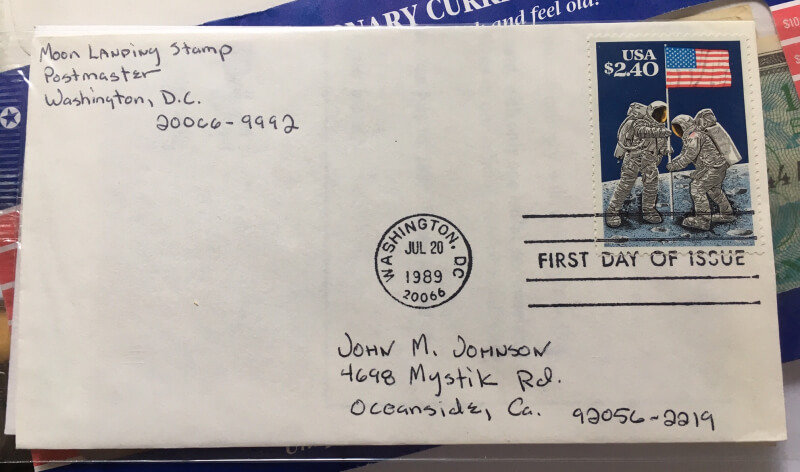 ONARY CURR
and feel old!
Moon Landing Stamp
Postmaster
Washington, D.C.
20066-9992
USA
$2.40
WASHINGTON, DC
JUL 20
1989
20066
FIRST DAY OF ISSUE
John M. Johnson
4698 Mystik Rd.
Oceanside, Ca. 92056-2219
$10